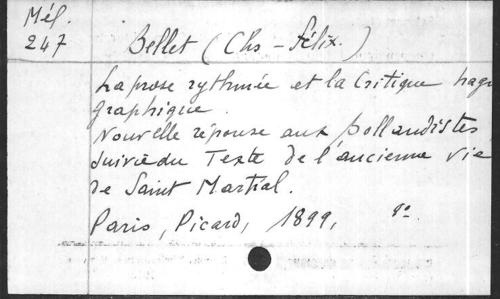 Mél.
247
Bellet (Chs - Félix.)
La prose rythmée et la Critique hagi
graphique.
Nouvelle réponse aux Bollandistes
suivie du Texte de l'ancienne vie
de Saint Martial.
Paris, Picard, 1899,